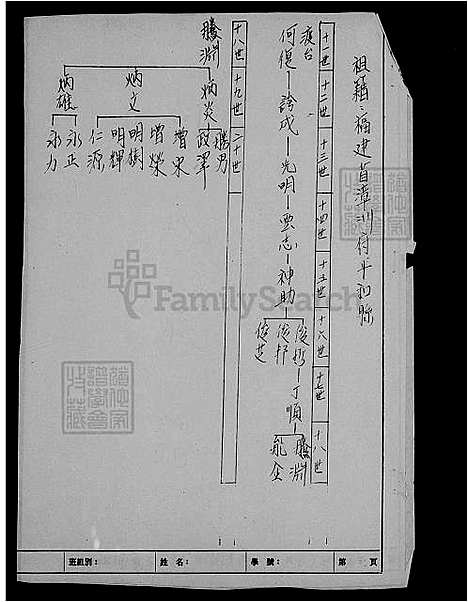 祖籍：福建省漳州府平和縣
十一世 十二世 十三世 十四世 十五世 十六世 十七世 十八世
渡台
何復—誇成—光明—要志—神助
俊哲—丁順
俊抒
俊芝
騰淵
能企
十八世 十九世 二十世
騰淵
炳炎
炳文
炳雄
勝男
政澤
增宋
增榮
明樹
明輝
仁源
永正
永力
FamilySearch
班組別： 姓名： 學號： 第 頁